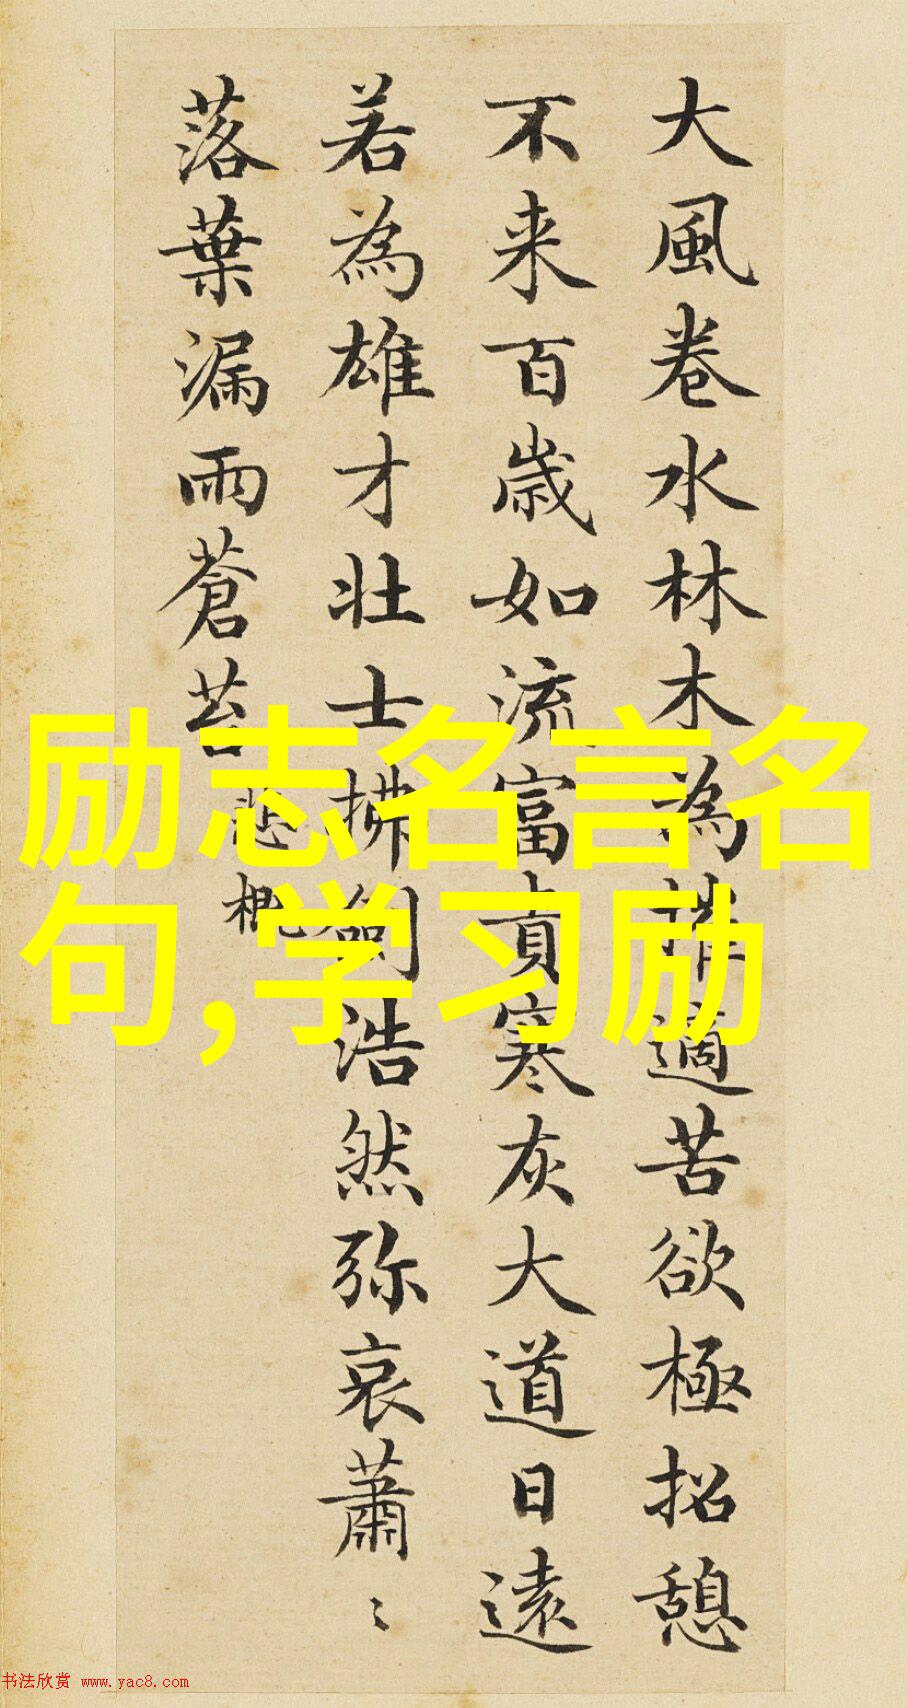 大風卷水林木為摧適苦欲極招憩
不来百歳如流富貴寒灰大道日遠
若為雄才壮士拂劍浩然弥哀蕭〻
落葉漏雨蒼苔
悲概
励志名言名
句,学习励
书法欣赏 www.yac8.com